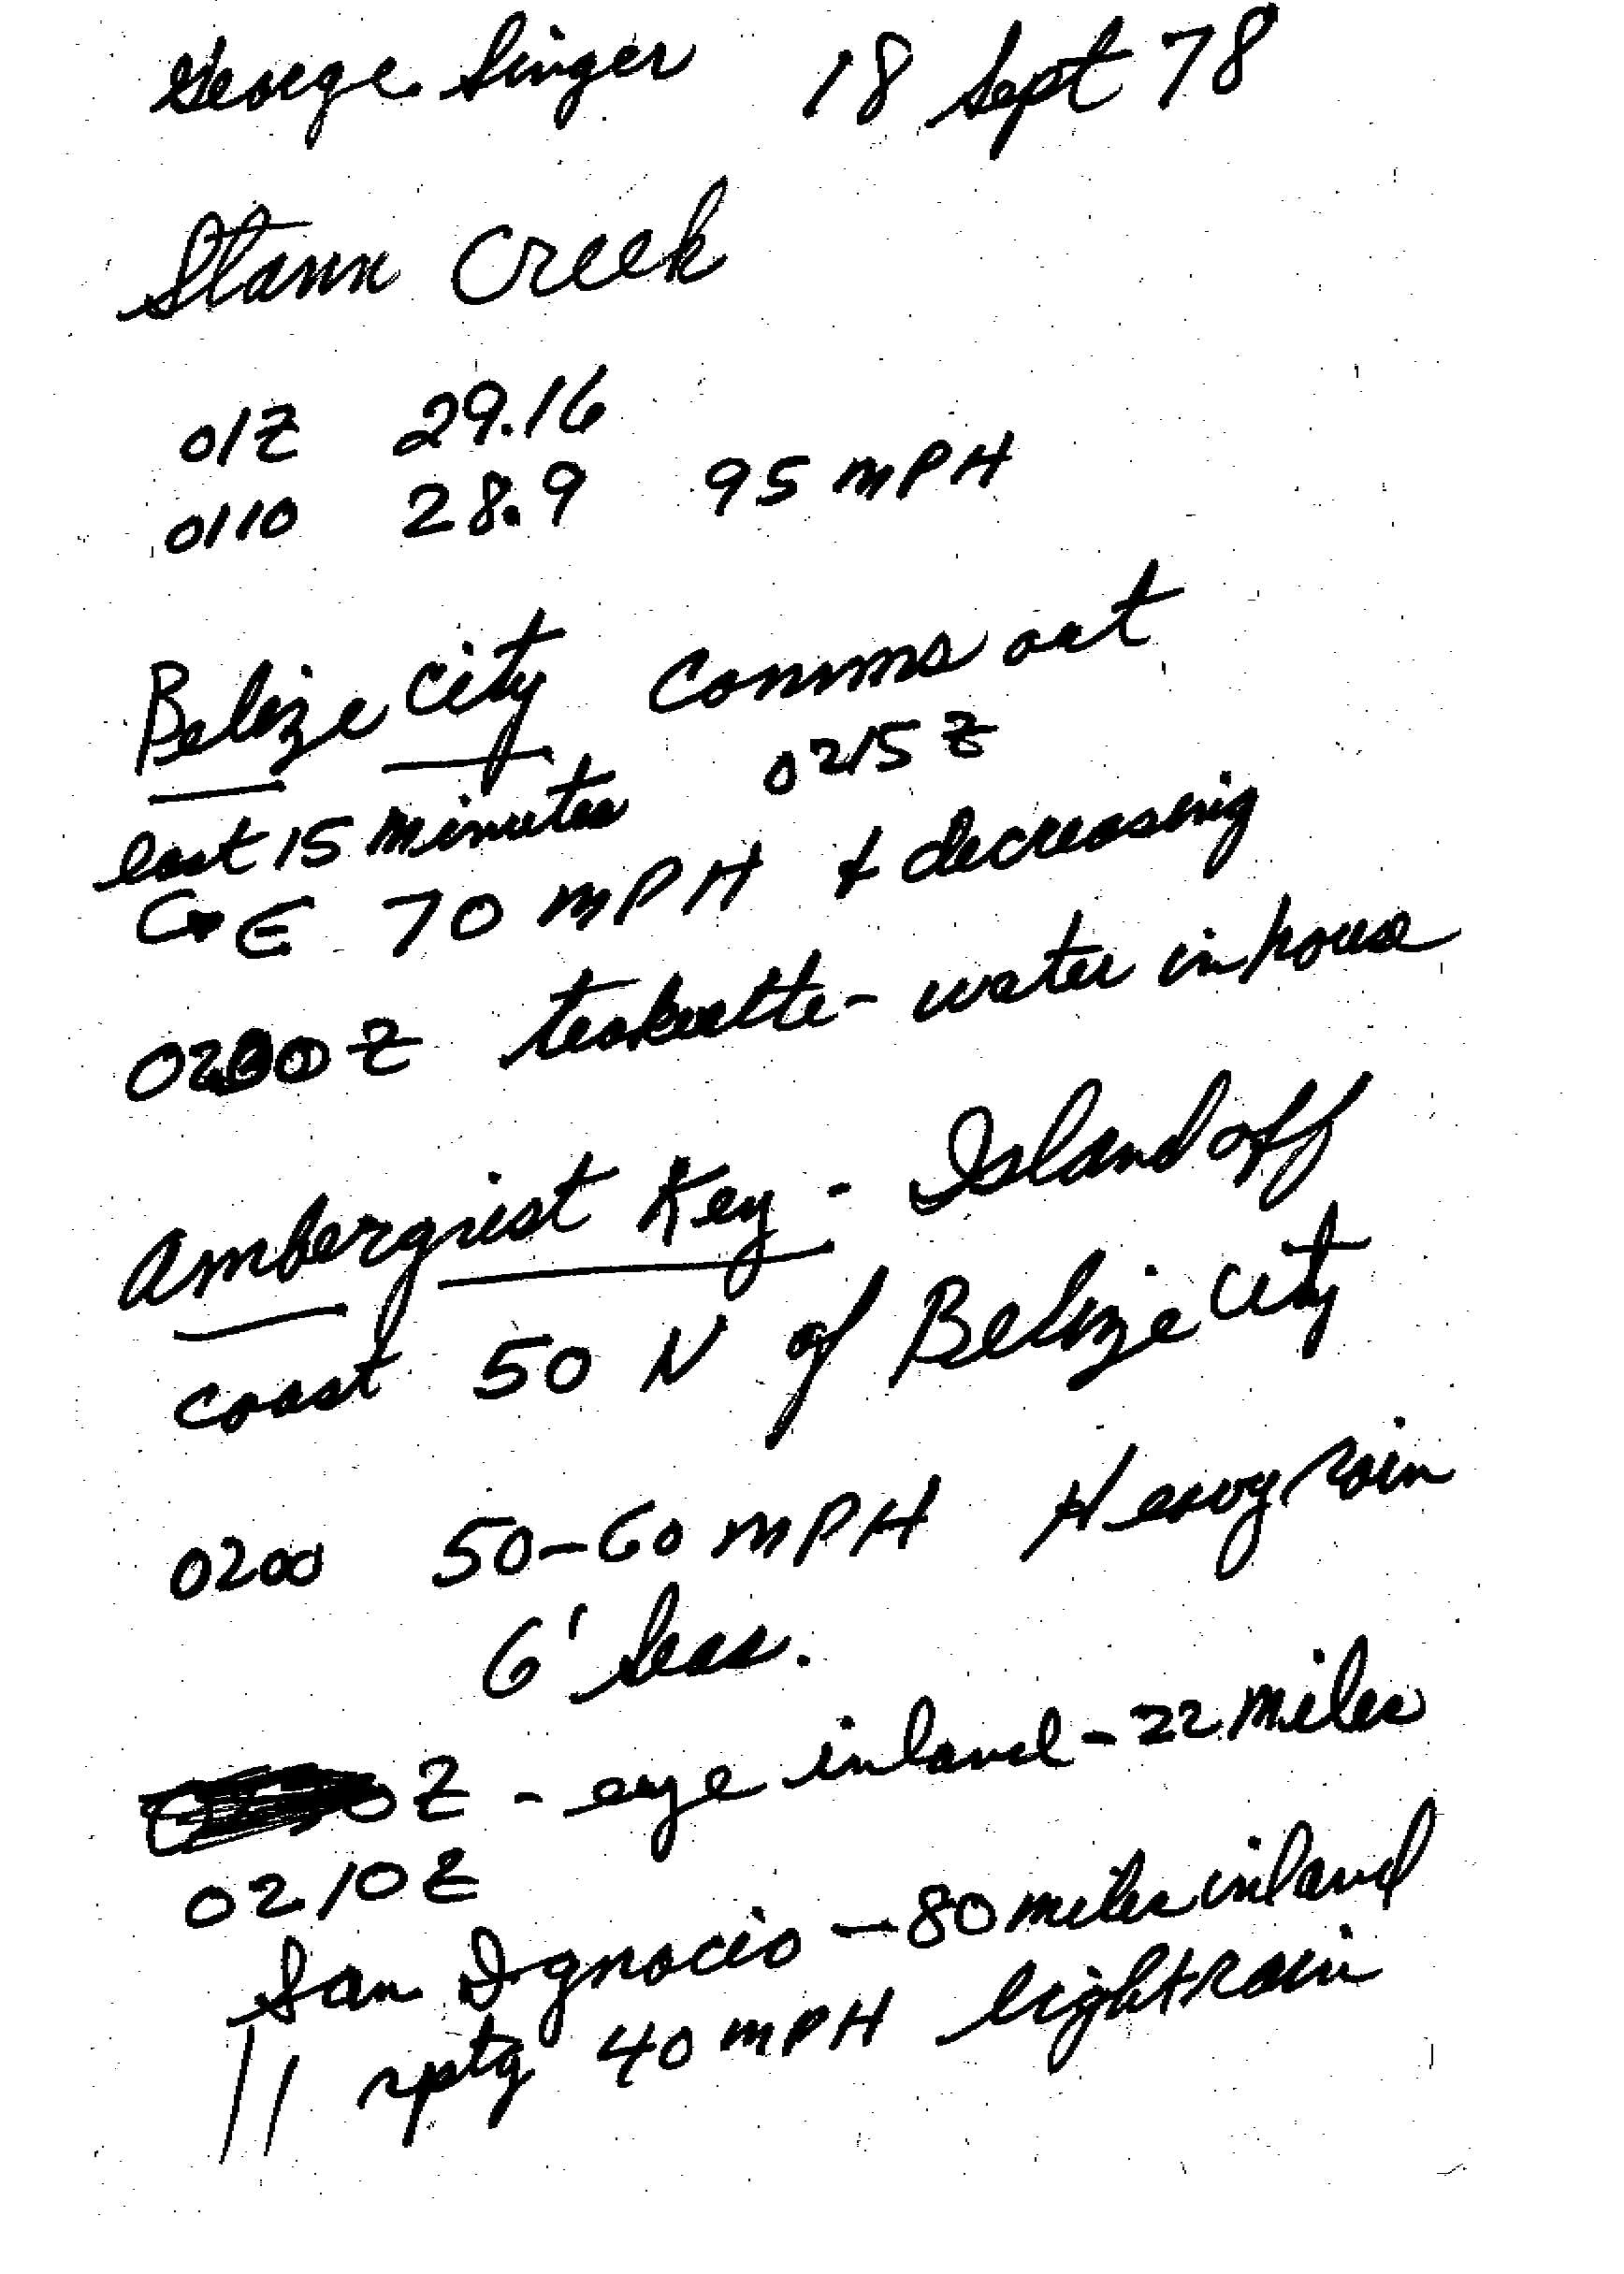 George Singer 18 Sept 78
Stann Creek
01Z 29.16
0110 28.9 95 MPH
Belize City Comms out
last 15 minutes 0215 Z
G E 70 MPH + decreasing
Z teakettle - water in house
Ambergrist Key - Island off
coast 50 N of Belize City
0200 50-60 MPH Heavy rain
6' seas.
Z - eye inland - 22 miles
0210Z
San Ignacio - 80 miles inland
rptg 40 MPH light rain